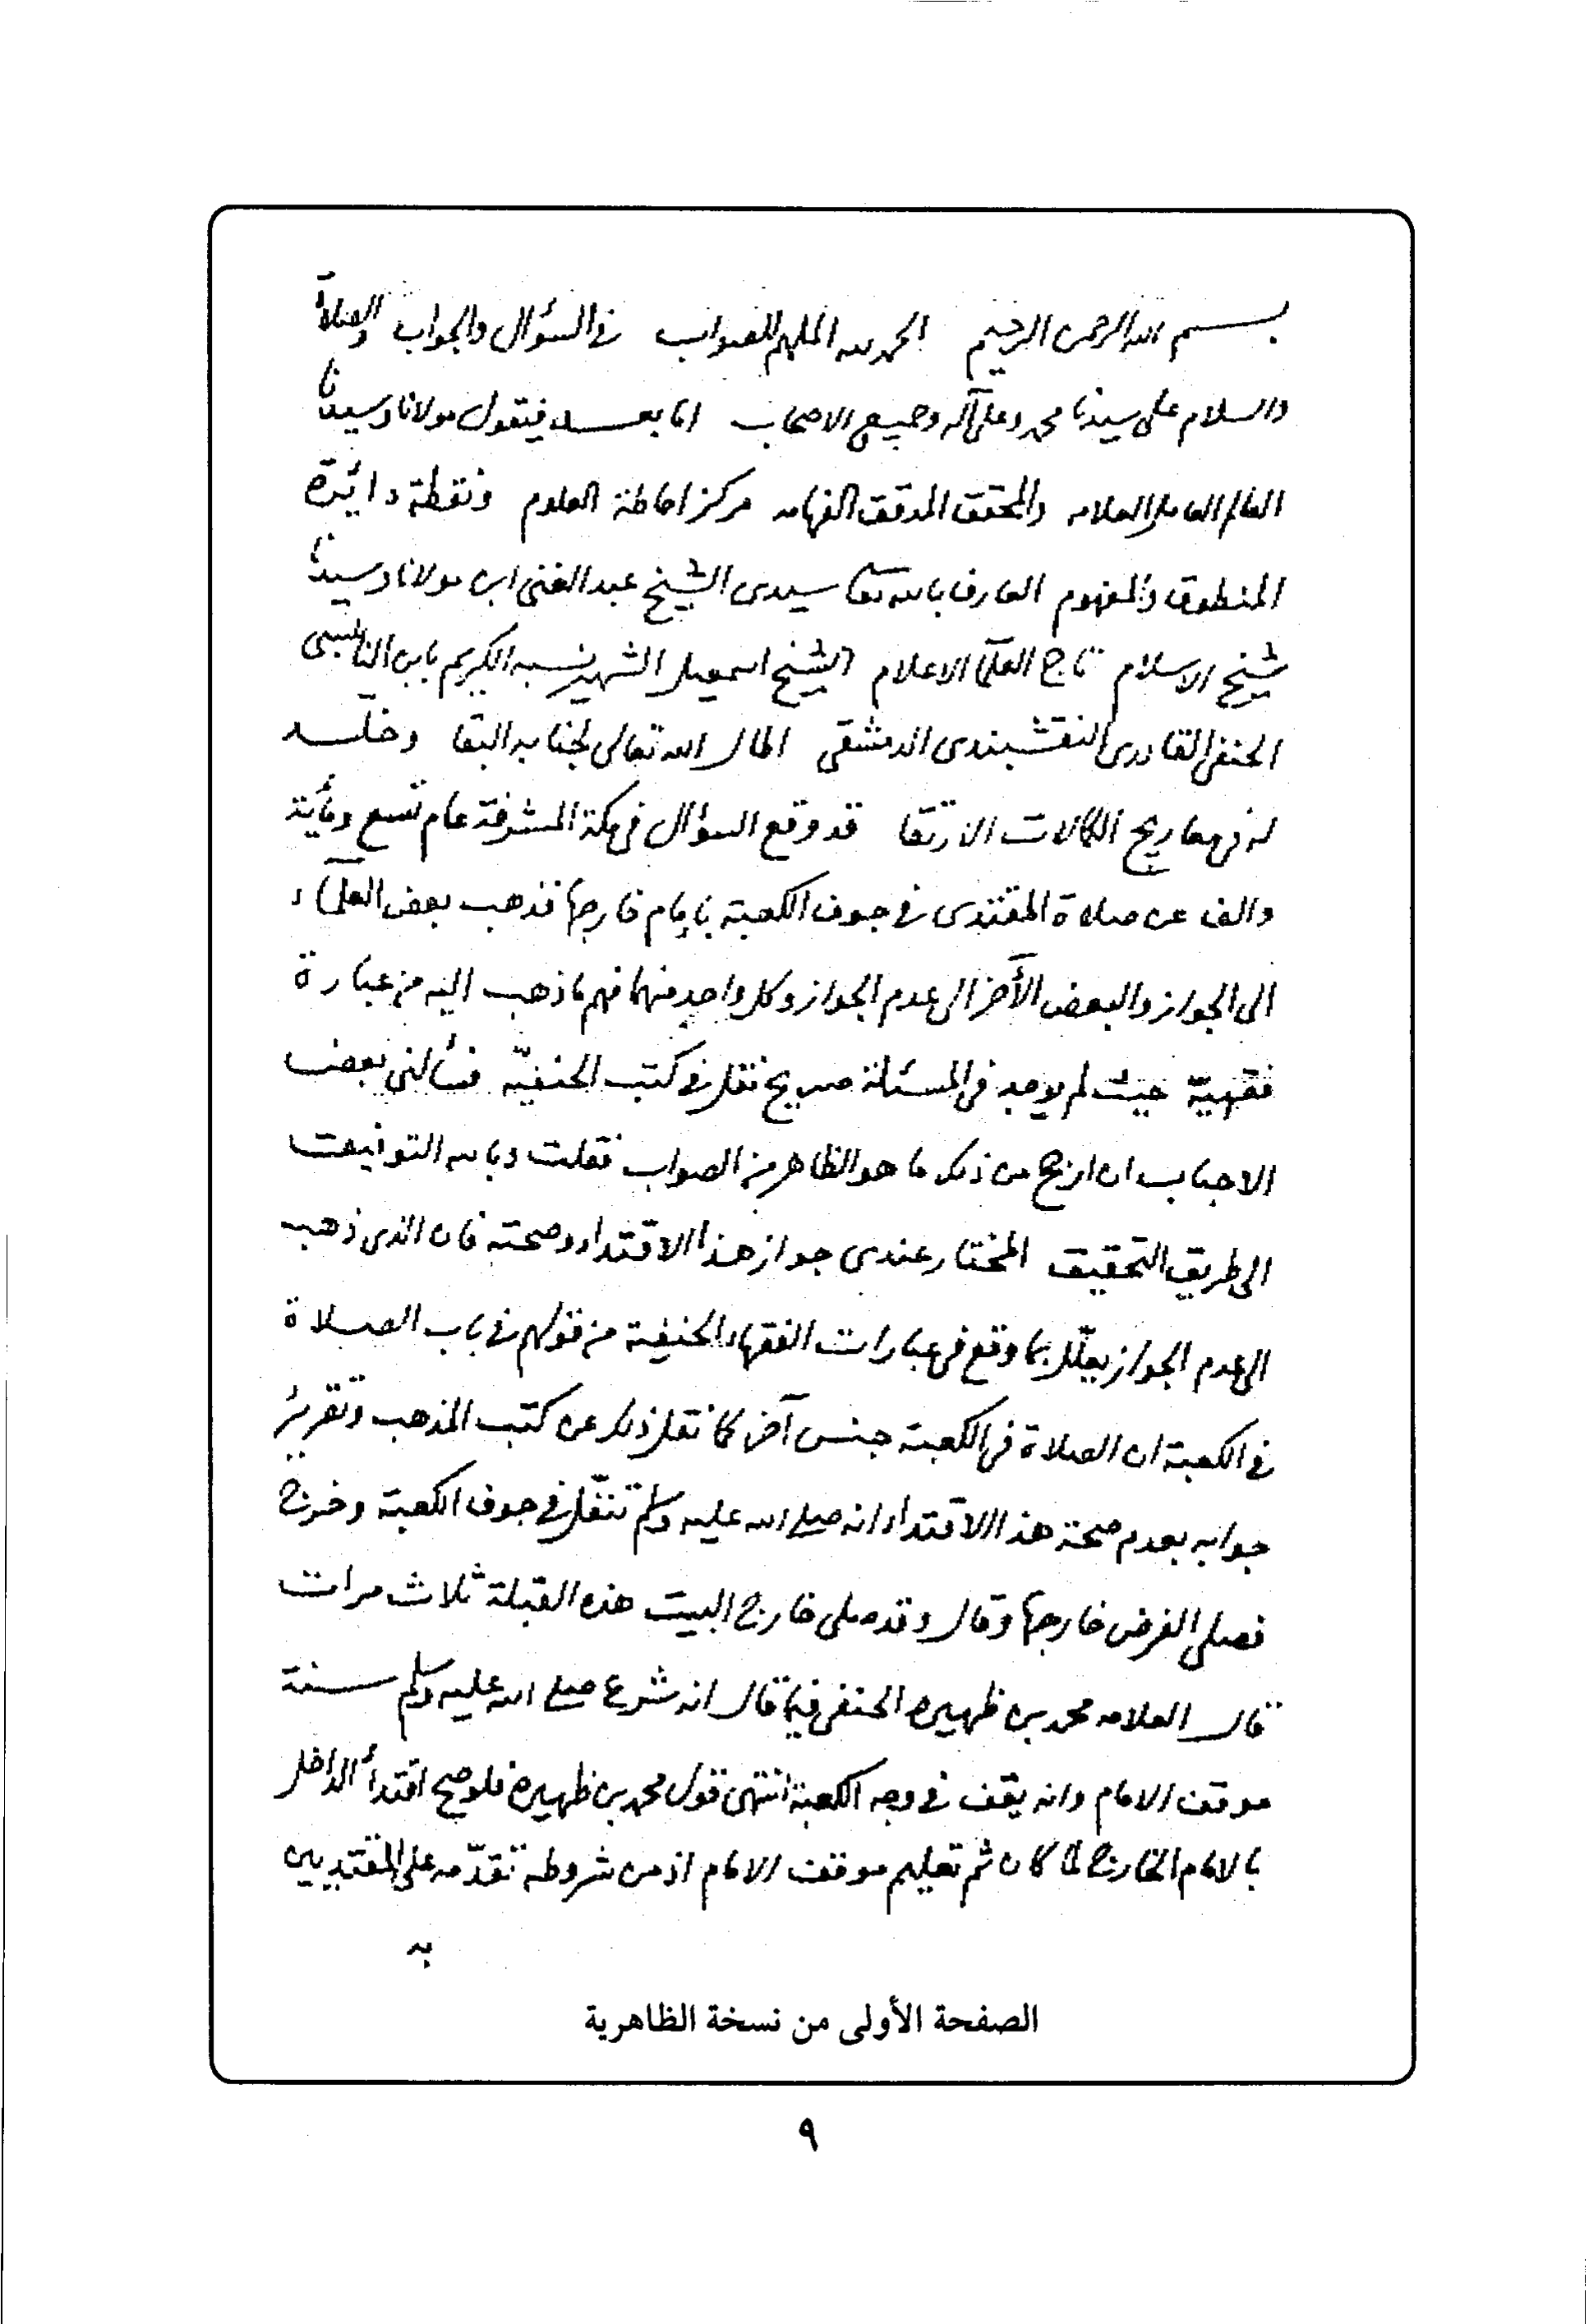 بسم الله الرحمن الرحيم الحمد لله الملهم للصواب في السؤال والجواب والصلاة
والسلام على سيدنا محمد وعلى آله وجميع الاصحاب اما بعد فيقول مولانا وسيدنا
العالم العامل العلامه والمحقق المدقق الفهامه مركز احاطة العلوم ونقطة دائرة
المنطوق والمفهوم العارف بالله تعالى سيدى الشيخ عبد الغنى ابن مولانا وسيدنا
شيخ الاسلام تاج العلما الاعلام الشيخ اسمعيل الشهير نسبه الكريم بابن النابلسى
الحنفى القادرى النقشبندى الدمشقى اطال الله تعالى لجنابه البقا وخلد
له فى معاريج الكمالات الارتقا قد وقع السؤال فى مكة المشرفة عام تسع ومأية
والف عن صلاة المقتدى في جوف الكعبة بامام خارجها فذهب بعض العلماء
الى الجواز والبعض الأخر الى عدم الجواز وكل واحد منهما فهم ما ذهب اليه من عبارة
فقهية حيث لم يوجد فى المسئلة صريح نقل في كتب الحنفيّه فسألنى بعض
الاحباب ان ارجح من ذلك ما هو الظاهر من الصواب فقلت وبالله التوفيق
الى طريق التحقيق المختار عندى جواز هذا الاقتداء وصحته فان الذى ذهب
الى عدم الجواز يعلّل بما وقع فى عبارات الفقهاء الحنفية من قولهم في باب الصلاة
في الكعبة ان الصلاة فى الكعبة جنس آخر كما نقل ذلك عن كتب المذهب وتقرير
جوابه بعدم صحة هذا الاقتداء انه صلى الله عليه وسلم تنفّل في جوف الكعبة وخرج
فصلى الفرض خارجها وقال وقد صلى خارج البيت هذه القبلة ثلاث مرات
قال العلامه محمد بن ظهيره الحنفى فيما قال انه شرع صلى الله عليه وسلم سنة
موقف الامام وانه يقف في وجه الكعبة انتهى قول محمد بن ظهيره فلو صح اقتدأ الداخل
بالامام الخارج لما كان ثم تعليم موقف الامام اذ من شروطه تقدّمه على المقتديين
به
الصفحة الأولى من نسخة الظاهرية
٩